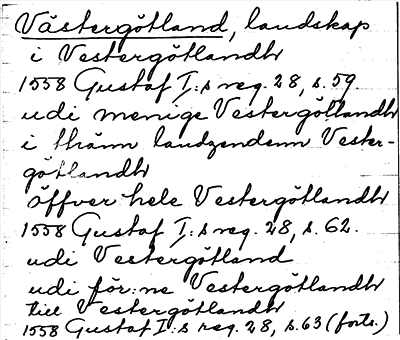 Västergötland, landskap
i Vestergötlandh
1558 Gustaf I:s reg. 28, s. 59.
udi menige Vestergötlandh
i thänn landzendenn Vester-
götlandh
öffver hele Vestergötlandh
1558 Gustaf I:s reg. 28, s. 62.
udi Vestergötland
udi för:ne Vestergötlandh
till Vestergötlandh
1558 Gustaf I:s reg. 28, s. 63 (forts.)